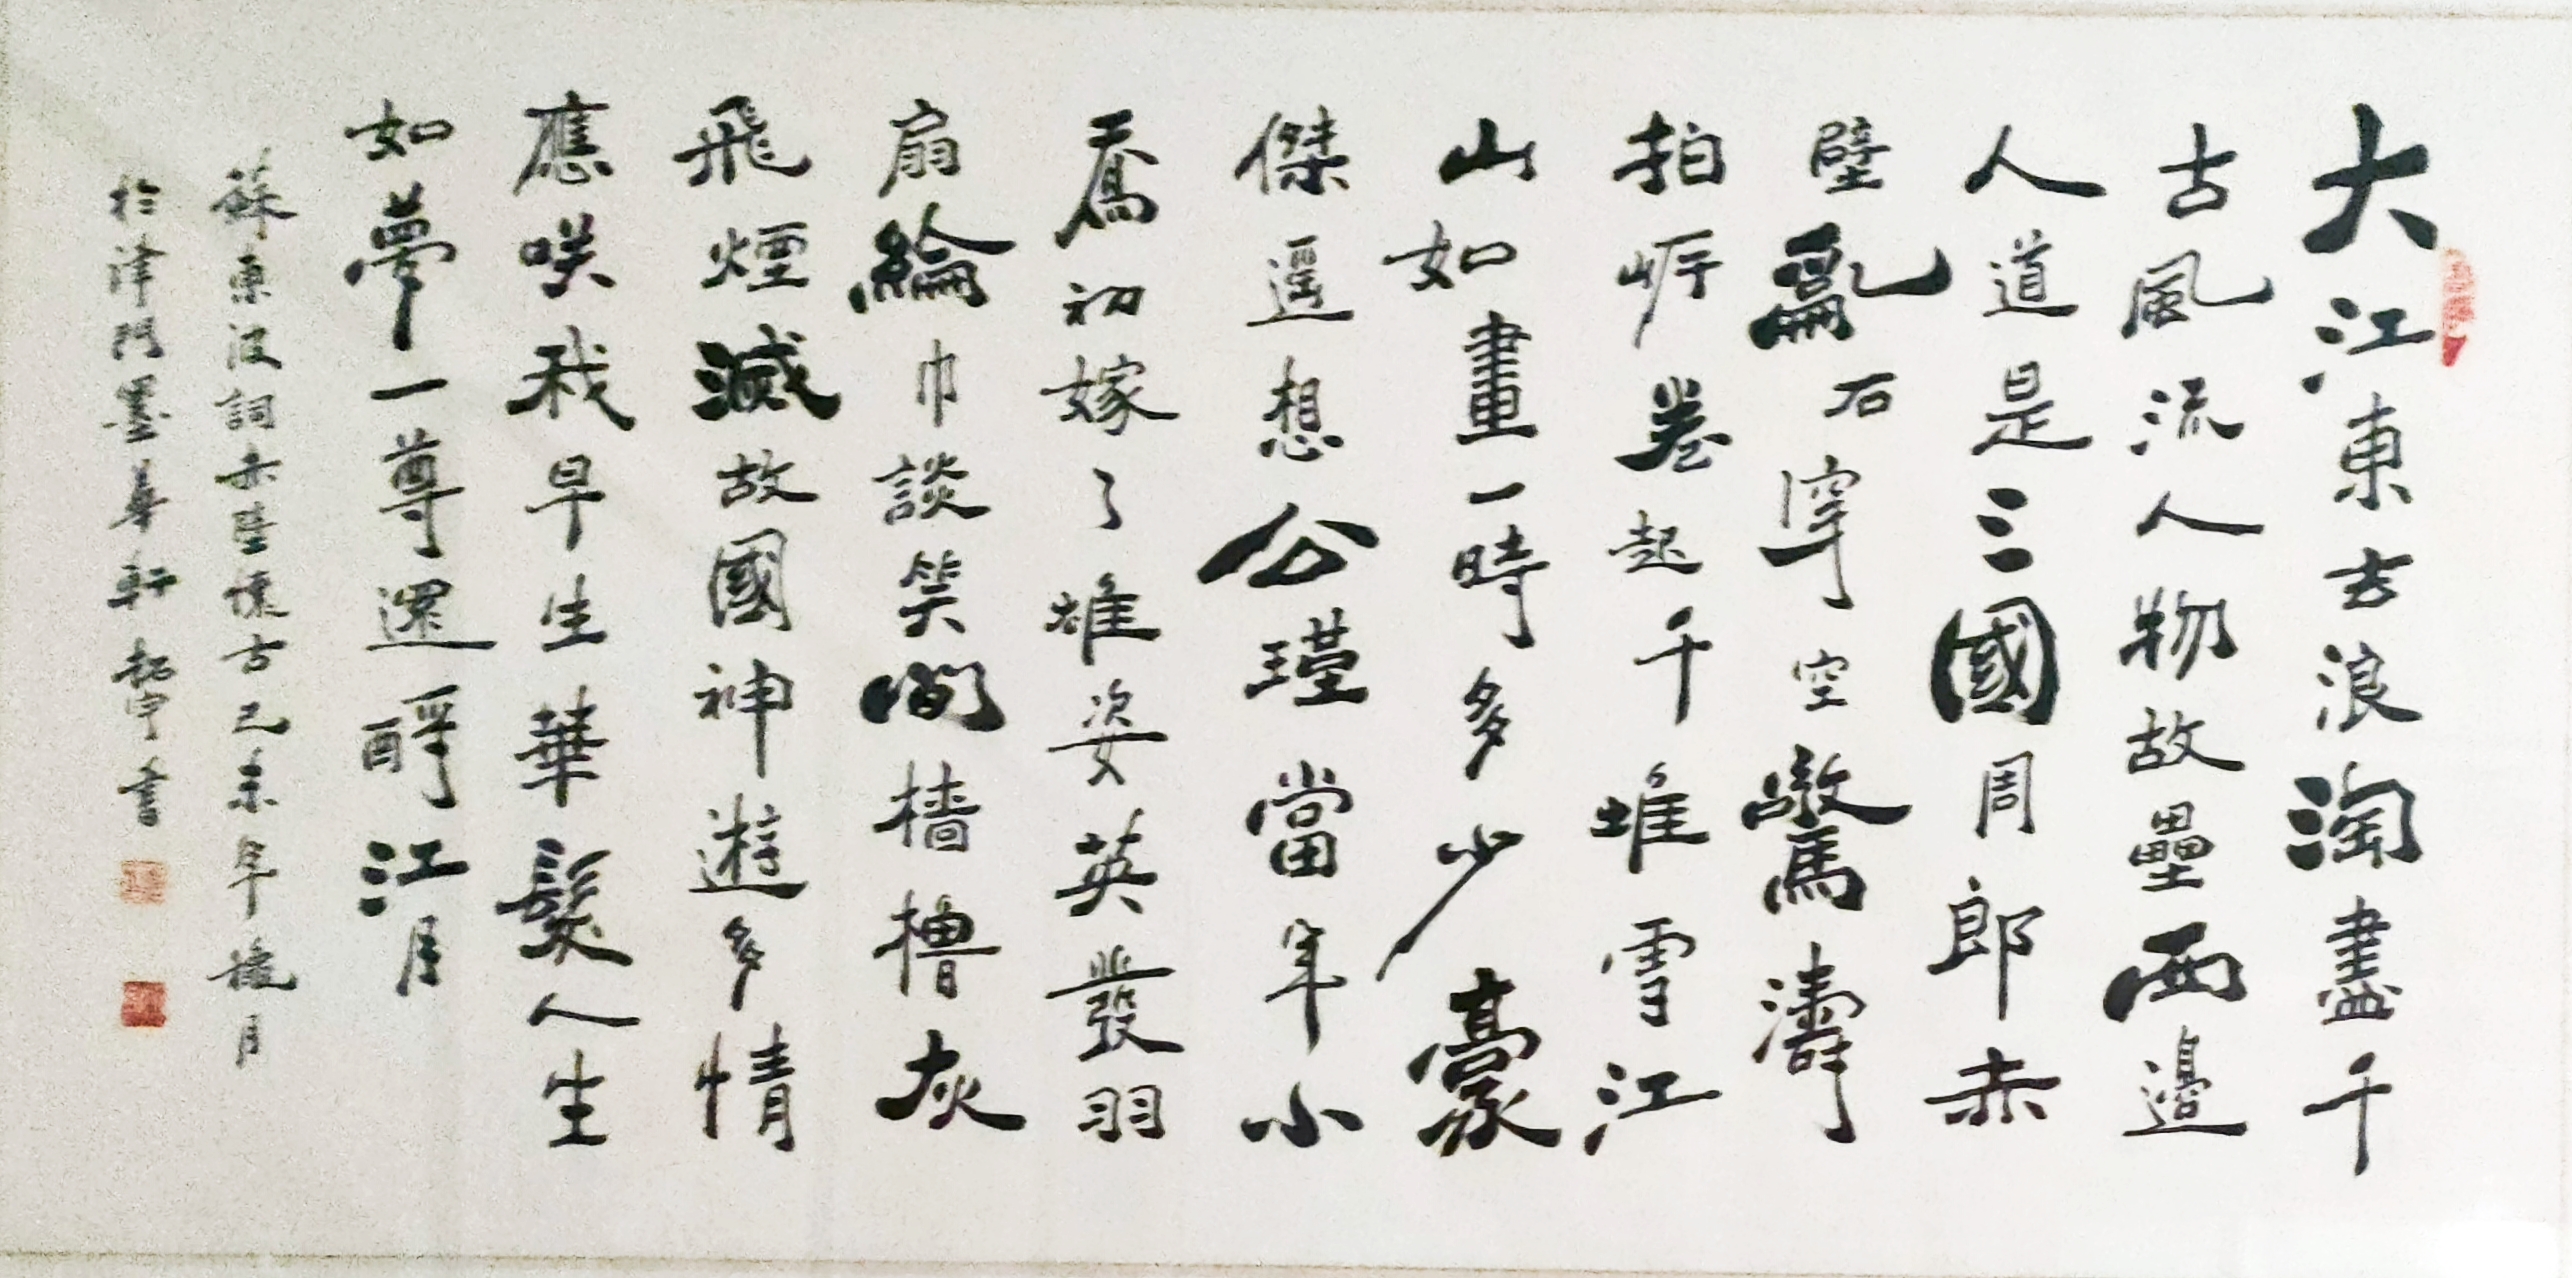 大江東去浪淘盡千
古風流人物故壘西邊
人道是三國周郎赤
壁亂石穿空驚濤
拍岸卷起千堆雪江
山如畫一時多少豪
傑遥想公瑾當年小
喬初嫁了雄姿英發羽
扇綸巾談笑間檣櫓灰
飛煙滅故國神遊多情
應咲我早生華髮人生
如夢一尊還酹江月
蘇東坡詞赤壁懷古己未年後月
於津門墨華軒 書